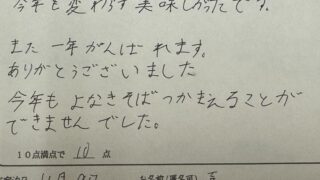 今年も変わらず美味しかったです。
また一年がんばれます。
ありがとうございました
今年も よなきそば つかまえることが
できませんでした。
10点満点で 10 点